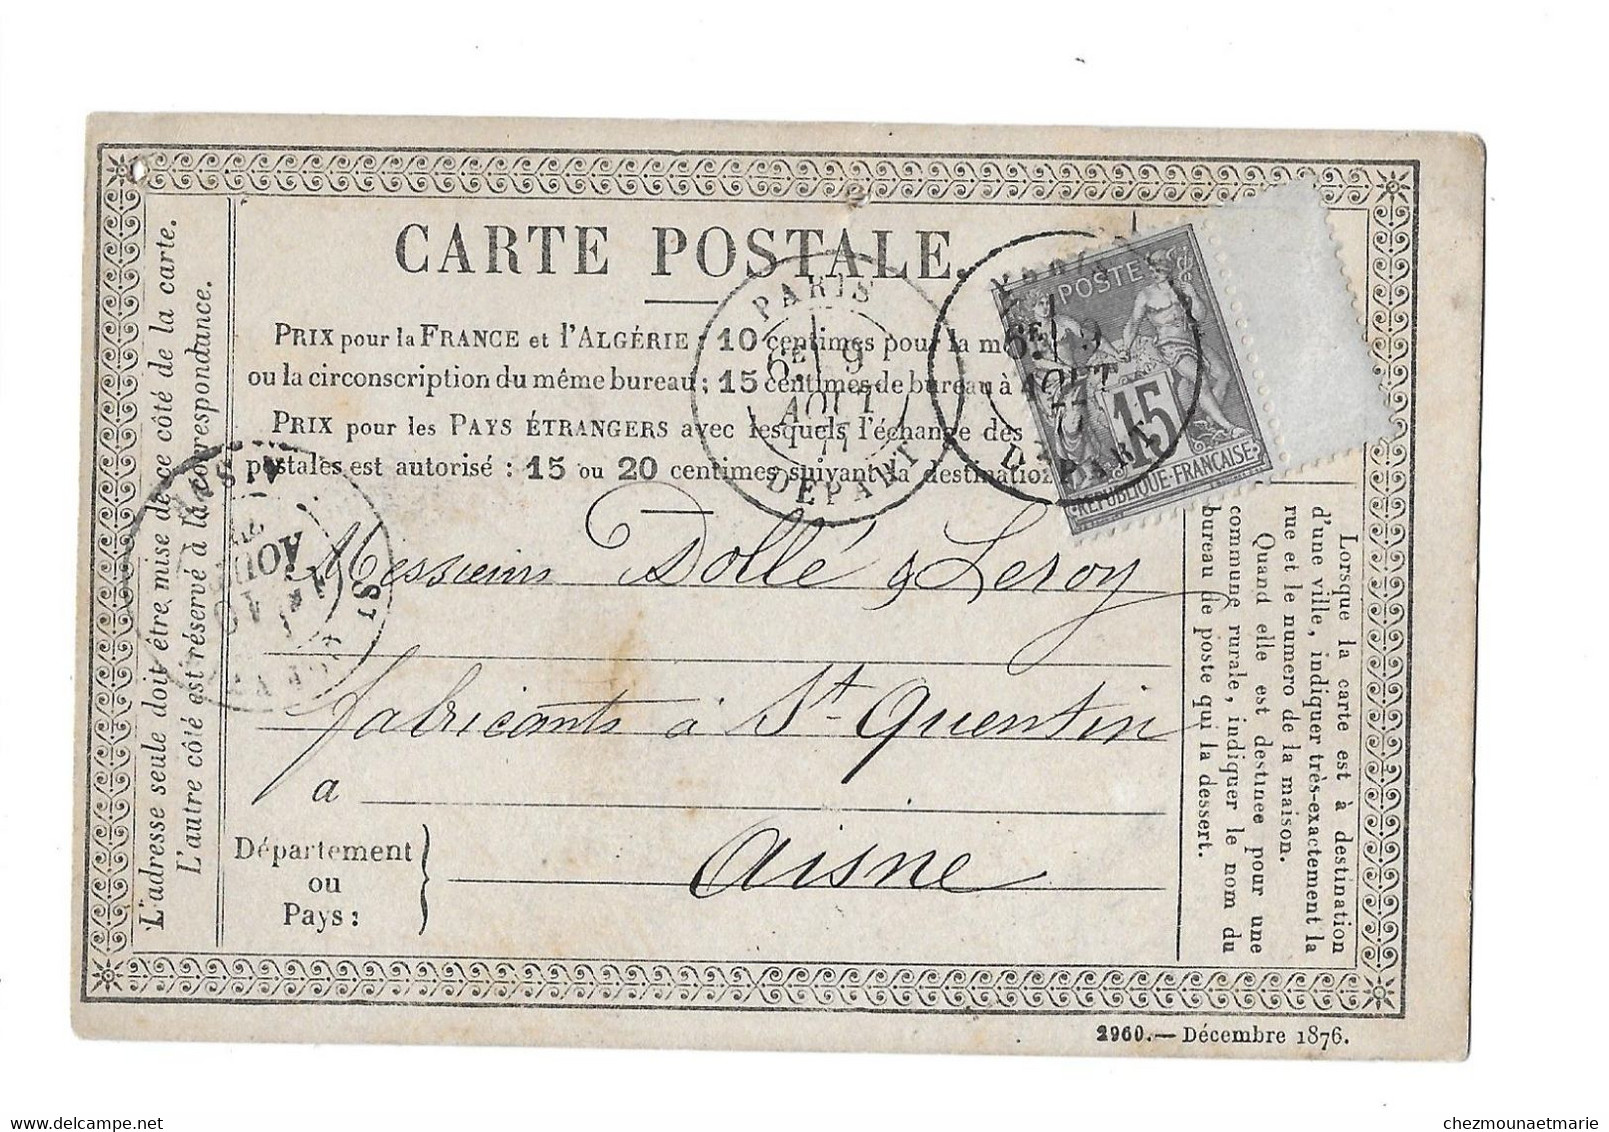 CARTE POSTALE.
PRIX pour la FRANCE et l'ALGÉRIE : 10 centimes pour la
ou la circonscription du même bureau ; 15 centimes de bureau à
PRIX pour les PAYS ÉTRANGERS avec lesquels l'échange des
postales est autorisé : 15 ou 20 centimes suivant la destination
PARIS
6E 9
AOUT
77
DEPART
6E 9
AOUT
77
DEPART
POSTE
15
REPUBLIQUE-FRANÇAISE.
Messieurs Dollé & Leroy
fabricants à St-Quentin
à
Département
ou
Pays :
Aisne
L'adresse seule doit être mise de ce côté de la carte.
L'autre côté est réservé à la correspondance.
AOUT
ST
Lorsque la carte est à destination
d'une ville, indiquer très-exactement la
rue et le numero de la maison.
Quand elle est destinée pour une
commune rurale, indiquer le nom du
bureau de poste qui la dessert.
2960.—Décembre 1876.
chezmounaetmarie